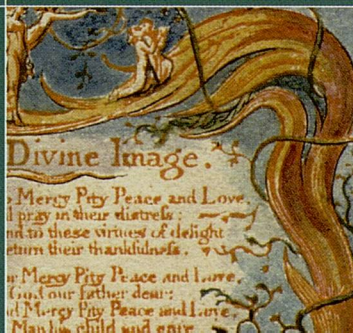 Divine Image.
Mercy Pity Peace and Love,
l pray in their distress:
nd to these virtues of delight
eturn their thankfulness.
r Mercy Pity Peace and Love,
God our father dear:
d Mercy Pity Peace and Love,
Man his child and care